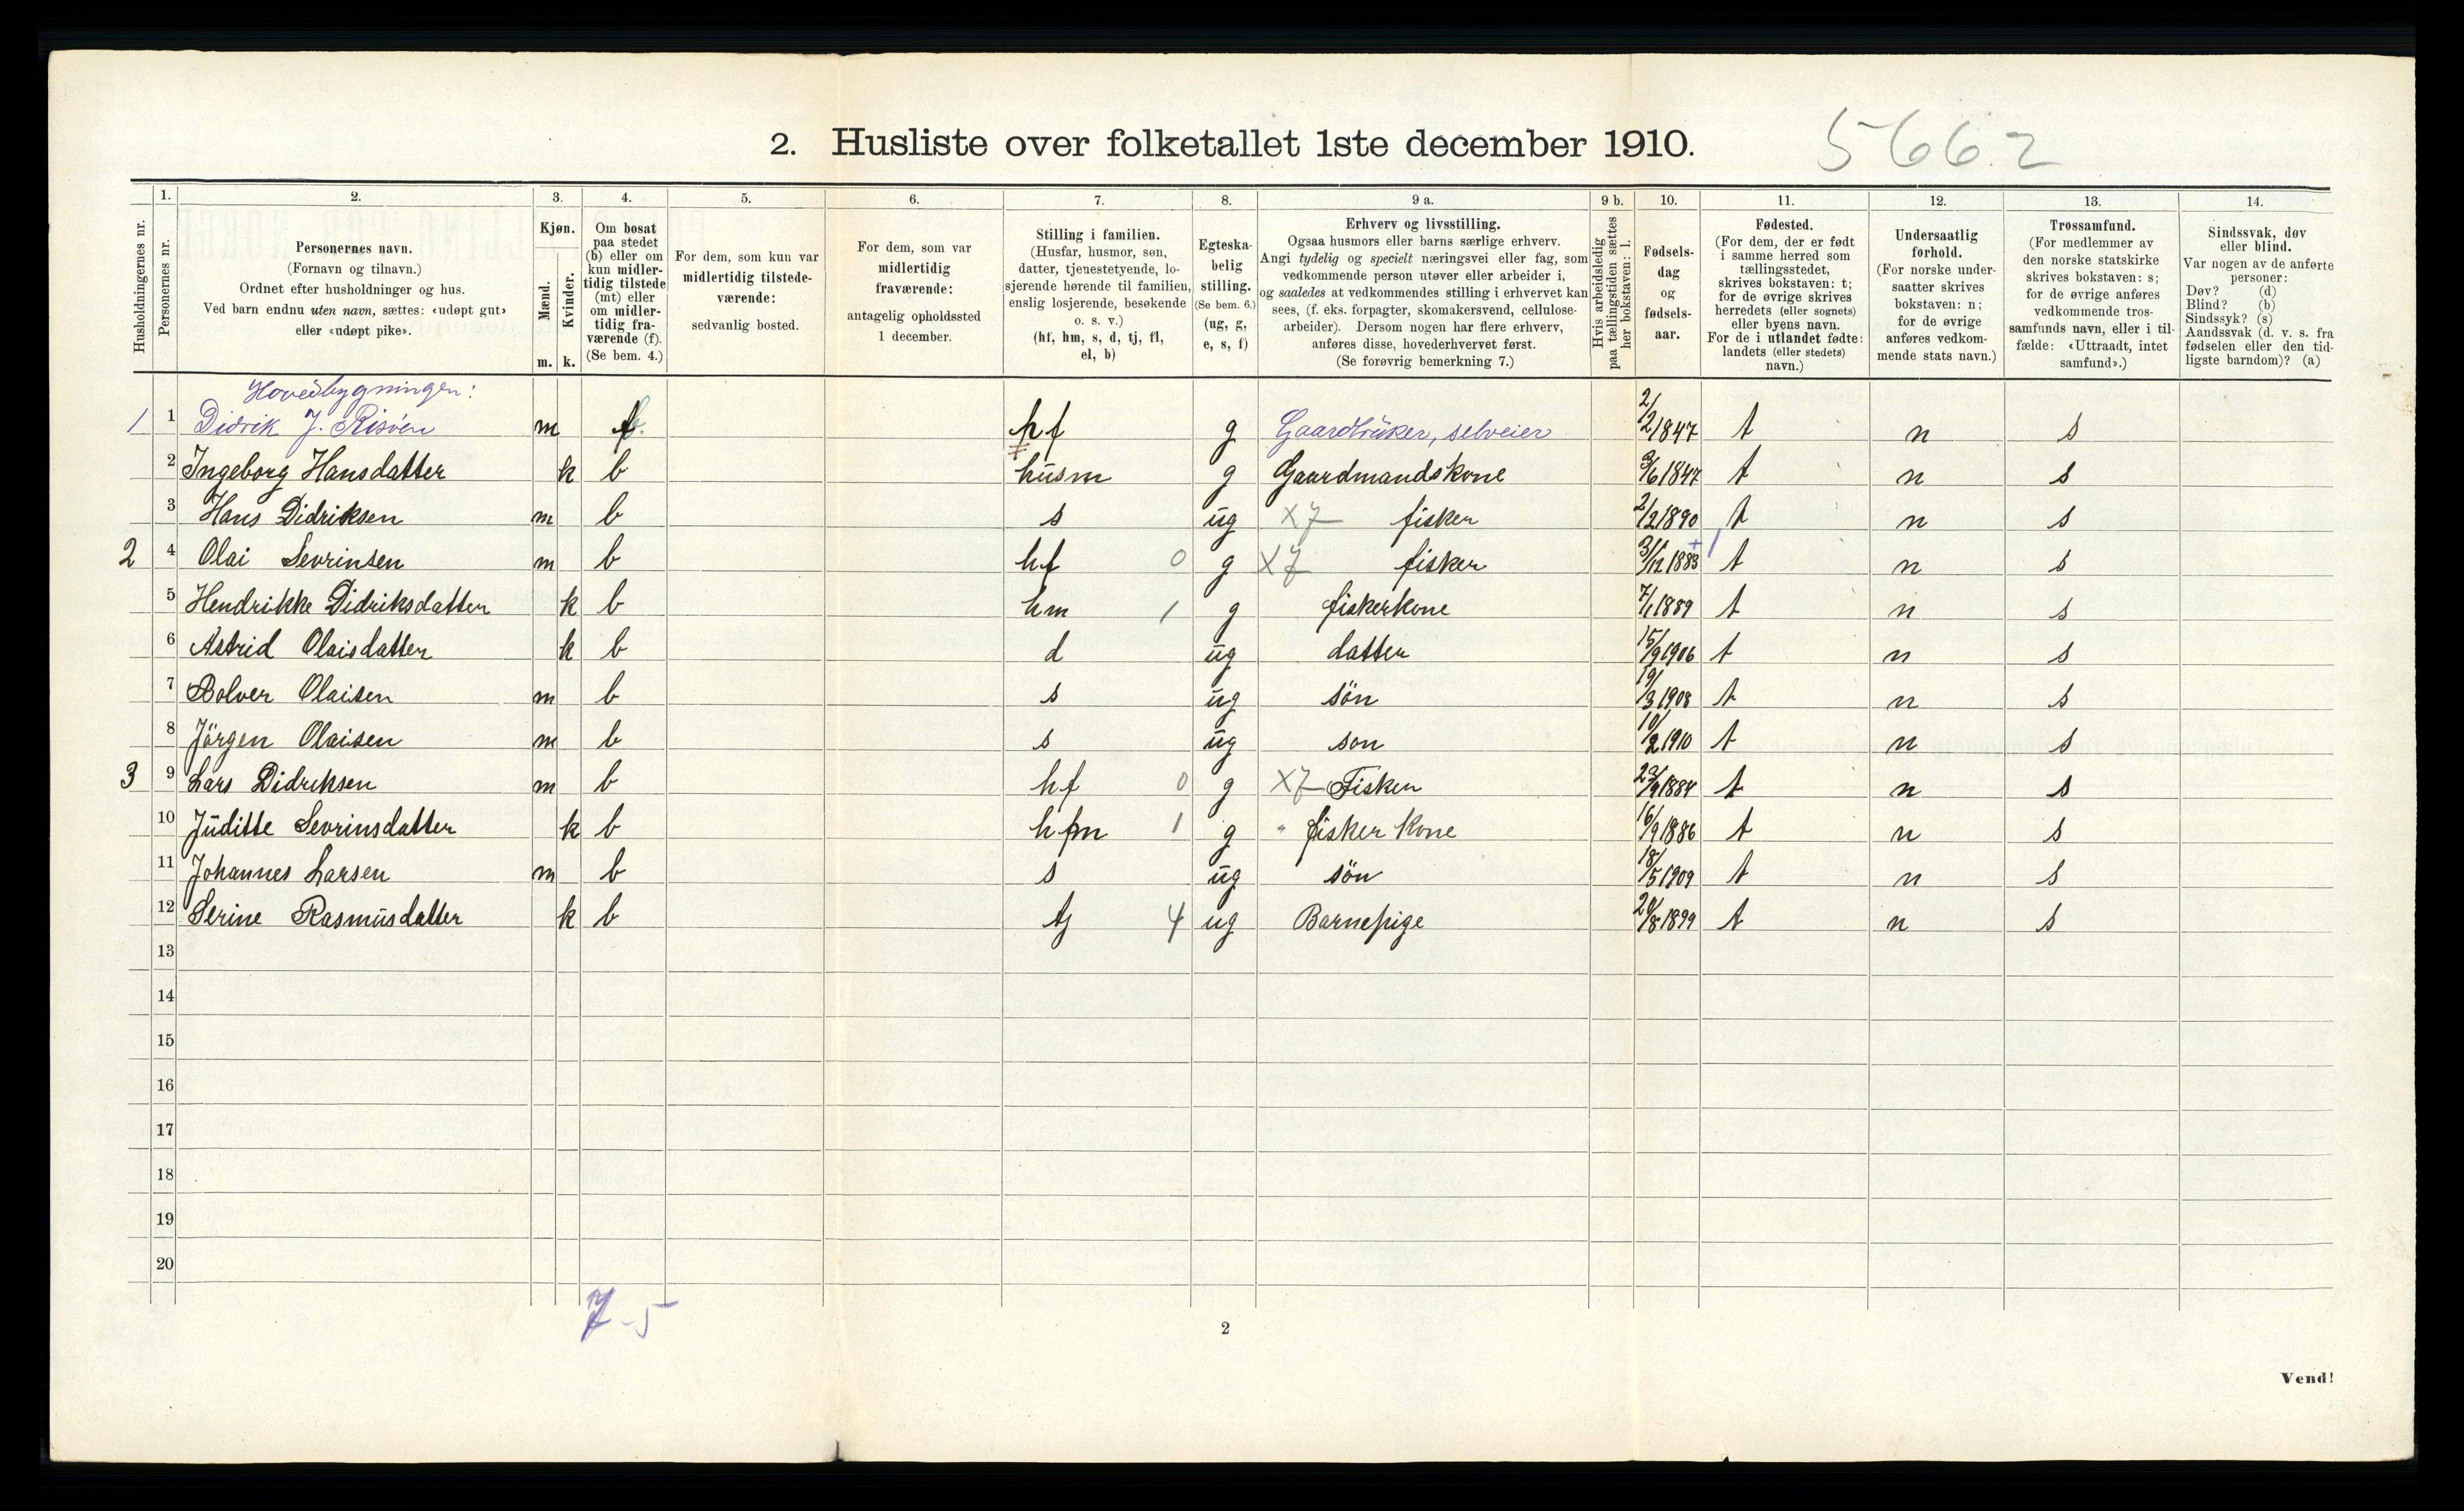 2. Husliste over folketallet 1ste december 1910.
5662
Husholdningernes nr.
1.
Personernes nr.
2.
Personernes navn.
(Fornavn og tilnavn.)
Ordnet efter husholdninger og hus.
Ved barn endnu uten navn, sættes: «udøpt gut»
eller «udøpt pike».
3.
Kjøn.
Mænd.
Kvinder.
m. k.
4.
Om bosat
paa stedet
(b) eller om
kun midler-
tidig tilstede
(mt) eller
om midler-
tidig fra-
værende (f).
(Se bem. 4.)
5.
For dem, som kun var
midlertidig tilstede-
værende:
sedvanlig bosted.
6.
For dem, som var
midlertidig
fraværende:
antagelig opholdssted
1 december.
7.
Stilling i familien.
(Husfar, husmor, søn,
datter, tjenestetyende, lo-
sjerende hørende til familien,
enslig losjerende, besøkende
o. s. v.)
(hf, hm, s, d, tj, fl,
el, b)
8.
Egteska-
belig
stilling.
(Se bem. 6.)
(ug, g,
e, s, f)
9 a.
Erhverv og livsstilling.
Ogsaa husmors eller barns særlige erhverv.
Angi tydelig og specielt næringsvei eller fag, som
vedkommende person utøver eller arbeider i,
og saaledes at vedkommendes stilling i erhvervet kan
sees, (f. eks. forpagter, skomakersvend, cellulose-
arbeider). Dersom nogen har flere erhverv,
anføres disse, hovederhvervet først.
(Se forøvrig bemerkning 7.)
9 b.
Hvis arbeidsledig
paa tællingstiden sættes
her bokstaven: l.
10.
Fødsels-
dag
og
fødsels-
aar.
11.
Fødested.
(For dem, der er født
i samme herred som
tællingsstedet,
skrives bokstaven: t;
for de øvrige skrives
herredets (eller sognets)
eller byens navn.
For de i utlandet fødte:
landets (eller stedets)
navn.)
12.
Undersaatlig
forhold.
(For norske under-
saatter skrives
bokstaven: n;
for de øvrige
anføres vedkom-
mende stats navn.)
13.
Trossamfund.
(For medlemmer av
den norske statskirke
skrives bokstaven: s;
for de øvrige anføres
vedkommende tros-
samfunds navn, eller i til-
fælde: «Uttraadt, intet
samfund».)
14.
Sindssvak, døv
eller blind.
Var nogen av de anførte
personer:
Døv? (d)
Blind? (b)
Sindssyk? (s)
Aandssvak (d. v. s. fra
fødselen eller den tid-
ligste barndom)? (a)
Hovedbygningen:
1 1 Didrik J. Risöen m b. hf g Gaardbrüker, selveier 2/2 1847 t n s
2 Ingeborg Hansdatter k b husm g Gaardmandskone 3/6 1847 t n s
3 Hans Didriksen m b s ug X7 fisker 2/2 1890 t n s
2 4 Olai Sevrinsen m b hf 0 g X7 fisker 31/12 1883 t n s
5 Hendrikke Didriksdatter k b hm 1 g fiskerkone 7/1 1889 t n s
6 Astrid Olaisdatter k b d ug datter 15/9 1906 t n s
7 Bolver Olaisen m b s ug sön 19/3 1908 t n s
8 Jörgen Olaisen m b s ug son 10/2 1910 t n s
3 9 Lars Didriksen m b hf 0 g X7 Fisker 23/9 1884 t n s
10 Jüditte Sevrinsdatter k b hm 1 g fisker Kone 16/9 1886 t n s
11 Johannes Larsen m b s ug sön 18/5 1909 t n s
12 Serine Rasmüsdatter k b tj 4 ug Barnepige 20/8 1899 t n s
13
14
15
16
17
18
19
20
7-5
2
Vend!